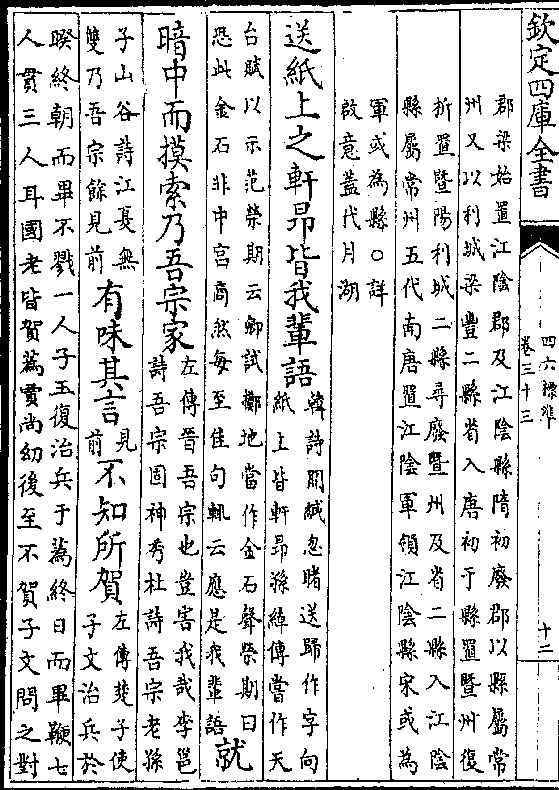 欽定四庫全書
四六標準
卷三十三
十二
郡梁始置江陰郡及江陰縣隋初廢郡以縣屬常
州又以利城梁豐二縣省入唐初于縣置暨州復
折置暨陽利城二縣尋廢暨州及省二縣入江陰
縣屬常州五代南唐置江陰軍領江陰縣宋或為
軍或為縣○詳
啟意蓋代月湖
送紙上之軒昂皆我輩語
韓詩開緘忽睹送歸作字向
紙上皆軒昂孫綽傳嘗作天
台賦以示范榮期云卿試擲地當作金石聲榮期曰
恐此金石非中宫商然每至佳句輒云應是我輩語
就
暗中而摸索乃吾宗家
左傳晉吾宗也豈害我哉李邕
詩吾宗固神秀杜詩吾宗老孫
子山谷詩江夏無
雙乃吾宗餘見前
有味其言
見
前
不知所賀
左傳楚子使
子文治兵於
睽終朝而畢不戮一人子玉復治兵于蒍終日而畢鞭七
人貫三人耳國老皆賀蒍賈尚幼後至不賀子文問之對